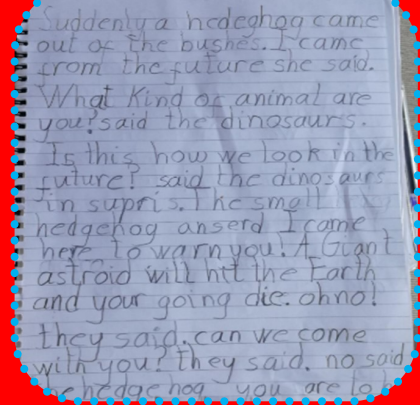 Suddenly a hedgehog came
out of the bushes. I came
from the future she said.
What kind of animal are
you? said the dinosaurs.
Is this how we look in the
future? said the dinosaurs
in supris. The small
hedgehog anserd I came
here to warn you! A Giant
astroid will hit the Earth
and your going die. oh no!
they said. can we come
with you? they said. no said
the hedgehog you are to